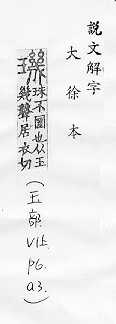 說文解字
大徐本
璣 珠不圓也从玉
幾聲居衣切
(玉部
V1上
p6.
a3.)